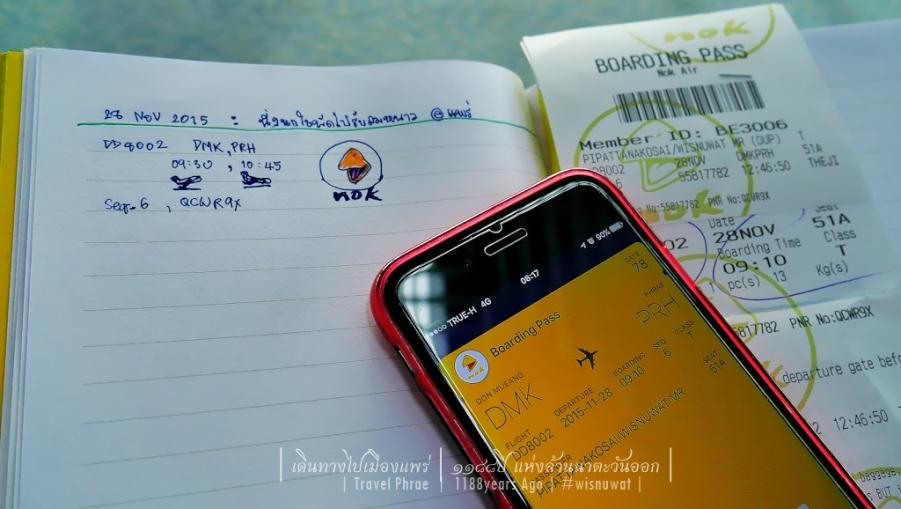 28 NOV 2015 :
@ แพร่
DD8002 DMK, PRH
09:30 , 10:45
Seq. 6 , QCWR9X
nok
nok
BOARDING PASS
Nok Air
Member ID: BE3006
PIPATTANAKOSAI/WISNUWAT MR (DUP) T
DD8002 28NOV DMKPRH 51A
6 55817782 12:46:50 THEJI
No:55817782 PNR No:QCWR9X
Date Seat
002 28NOV 51A
Boarding Time Class
09:10 T
pc(s) 13 Kg(s)
55817782 PNR No:QCWR9X
departure gate before
12:46:50 THEJI
TRUE-H 4G 08:17 90%
nok
Boarding Pass
GATE
78
DON MUEANG PHRAE
DMK PRH
FLIGHT DEPARTURE BOARDING SEQ CLASS SEAT
DD8002 2015-11-28 09:10 6 T 51A
PASSENGER
PIPATTANAKOSAI/WISNUWAT MR
| เดินทางไปเมืองแพร่ | ๑๑๘๘ปี แห่งล้านนาตะวันออก |
| Travel Phrae | 1188years Ago | #wisnuwat |